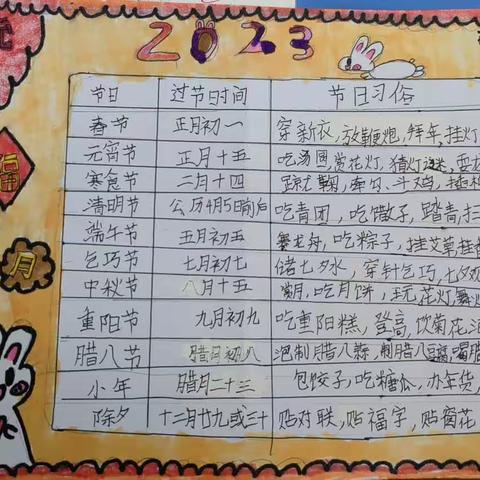 元
2023
节日 过节日时间 节日习俗
春节 正月初一 穿新衣,放鞭炮,拜年,挂灯
元宵节 正月十五 吃汤圆赏花灯,猜灯迷,耍龙
寒食节 二月十四 踢尤鞠,牵勾、斗鸡,
清明节 公历4月5日前后 吃青团,吃馓子,踏青,扫
端午节 五月初五 赛龙舟,吃粽子,挂艾草,挂
乞巧节 七月初七 储七夕水,穿针乞巧,七夕
中秋节 八月十五 赏月,吃月饼,玩花灯,
重阳节 九月初九 吃重阳糕,登高,饮菊花酒
腊八节 腊月初八 泡制腊八蒜,制腊八豆腐,喝腊
小年 腊月二十三 包饺子,吃糖瓜,办年货,
除夕 十二月廿九或三十 贴对联,贴福字,贴窗花
福
月